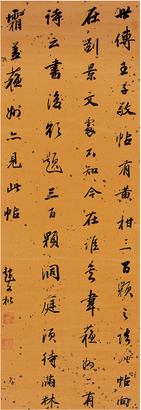 世傳王子敬帖有黃柑三百顆之語此帖向
在劉景文處不知今在誰家韋蘇州亦有
詩云書後欲題三百顆洞庭須待滿林
霜蓋蘇州亦見此帖